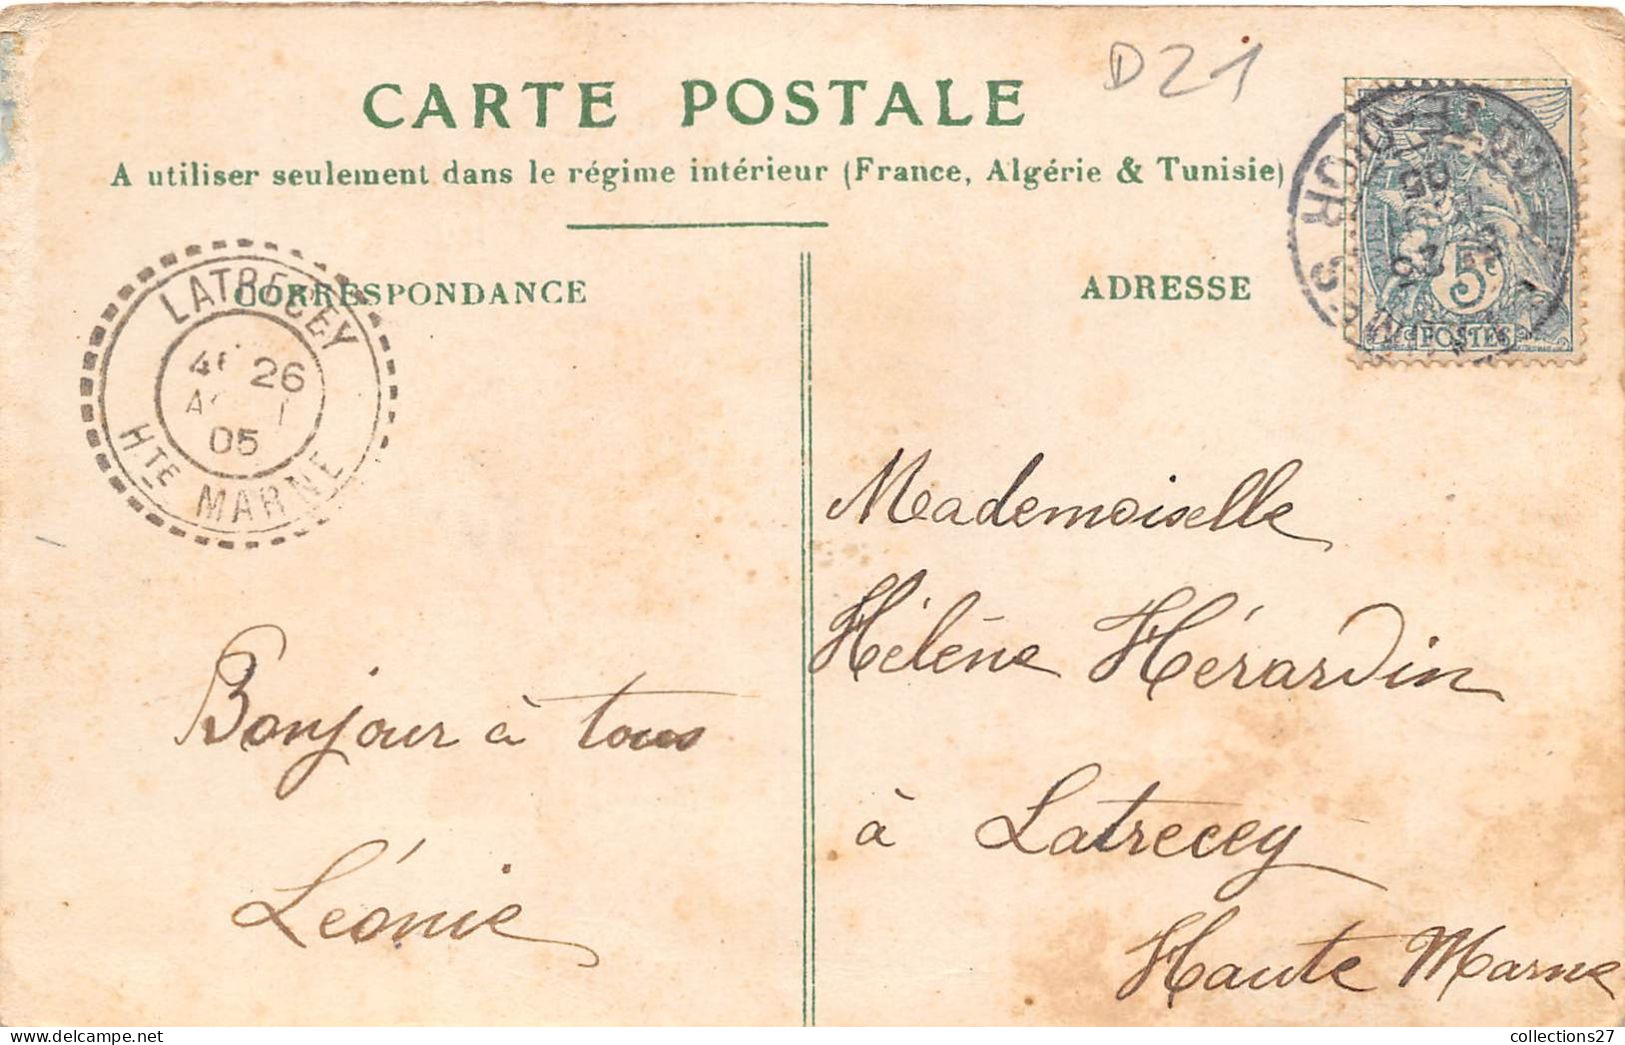 D21
CARTE POSTALE
A utiliser seulement dans le régime intérieur (France, Algérie & Tunisie)
CORRESPONDANCE
ADRESSE
LATRECEY
26
05
HTE MARNE
5
POSTES
Bonjour à tous
Léonie
Mademoiselle
Hélène Hérardin
à Latrecey
Haute Marne
collections27